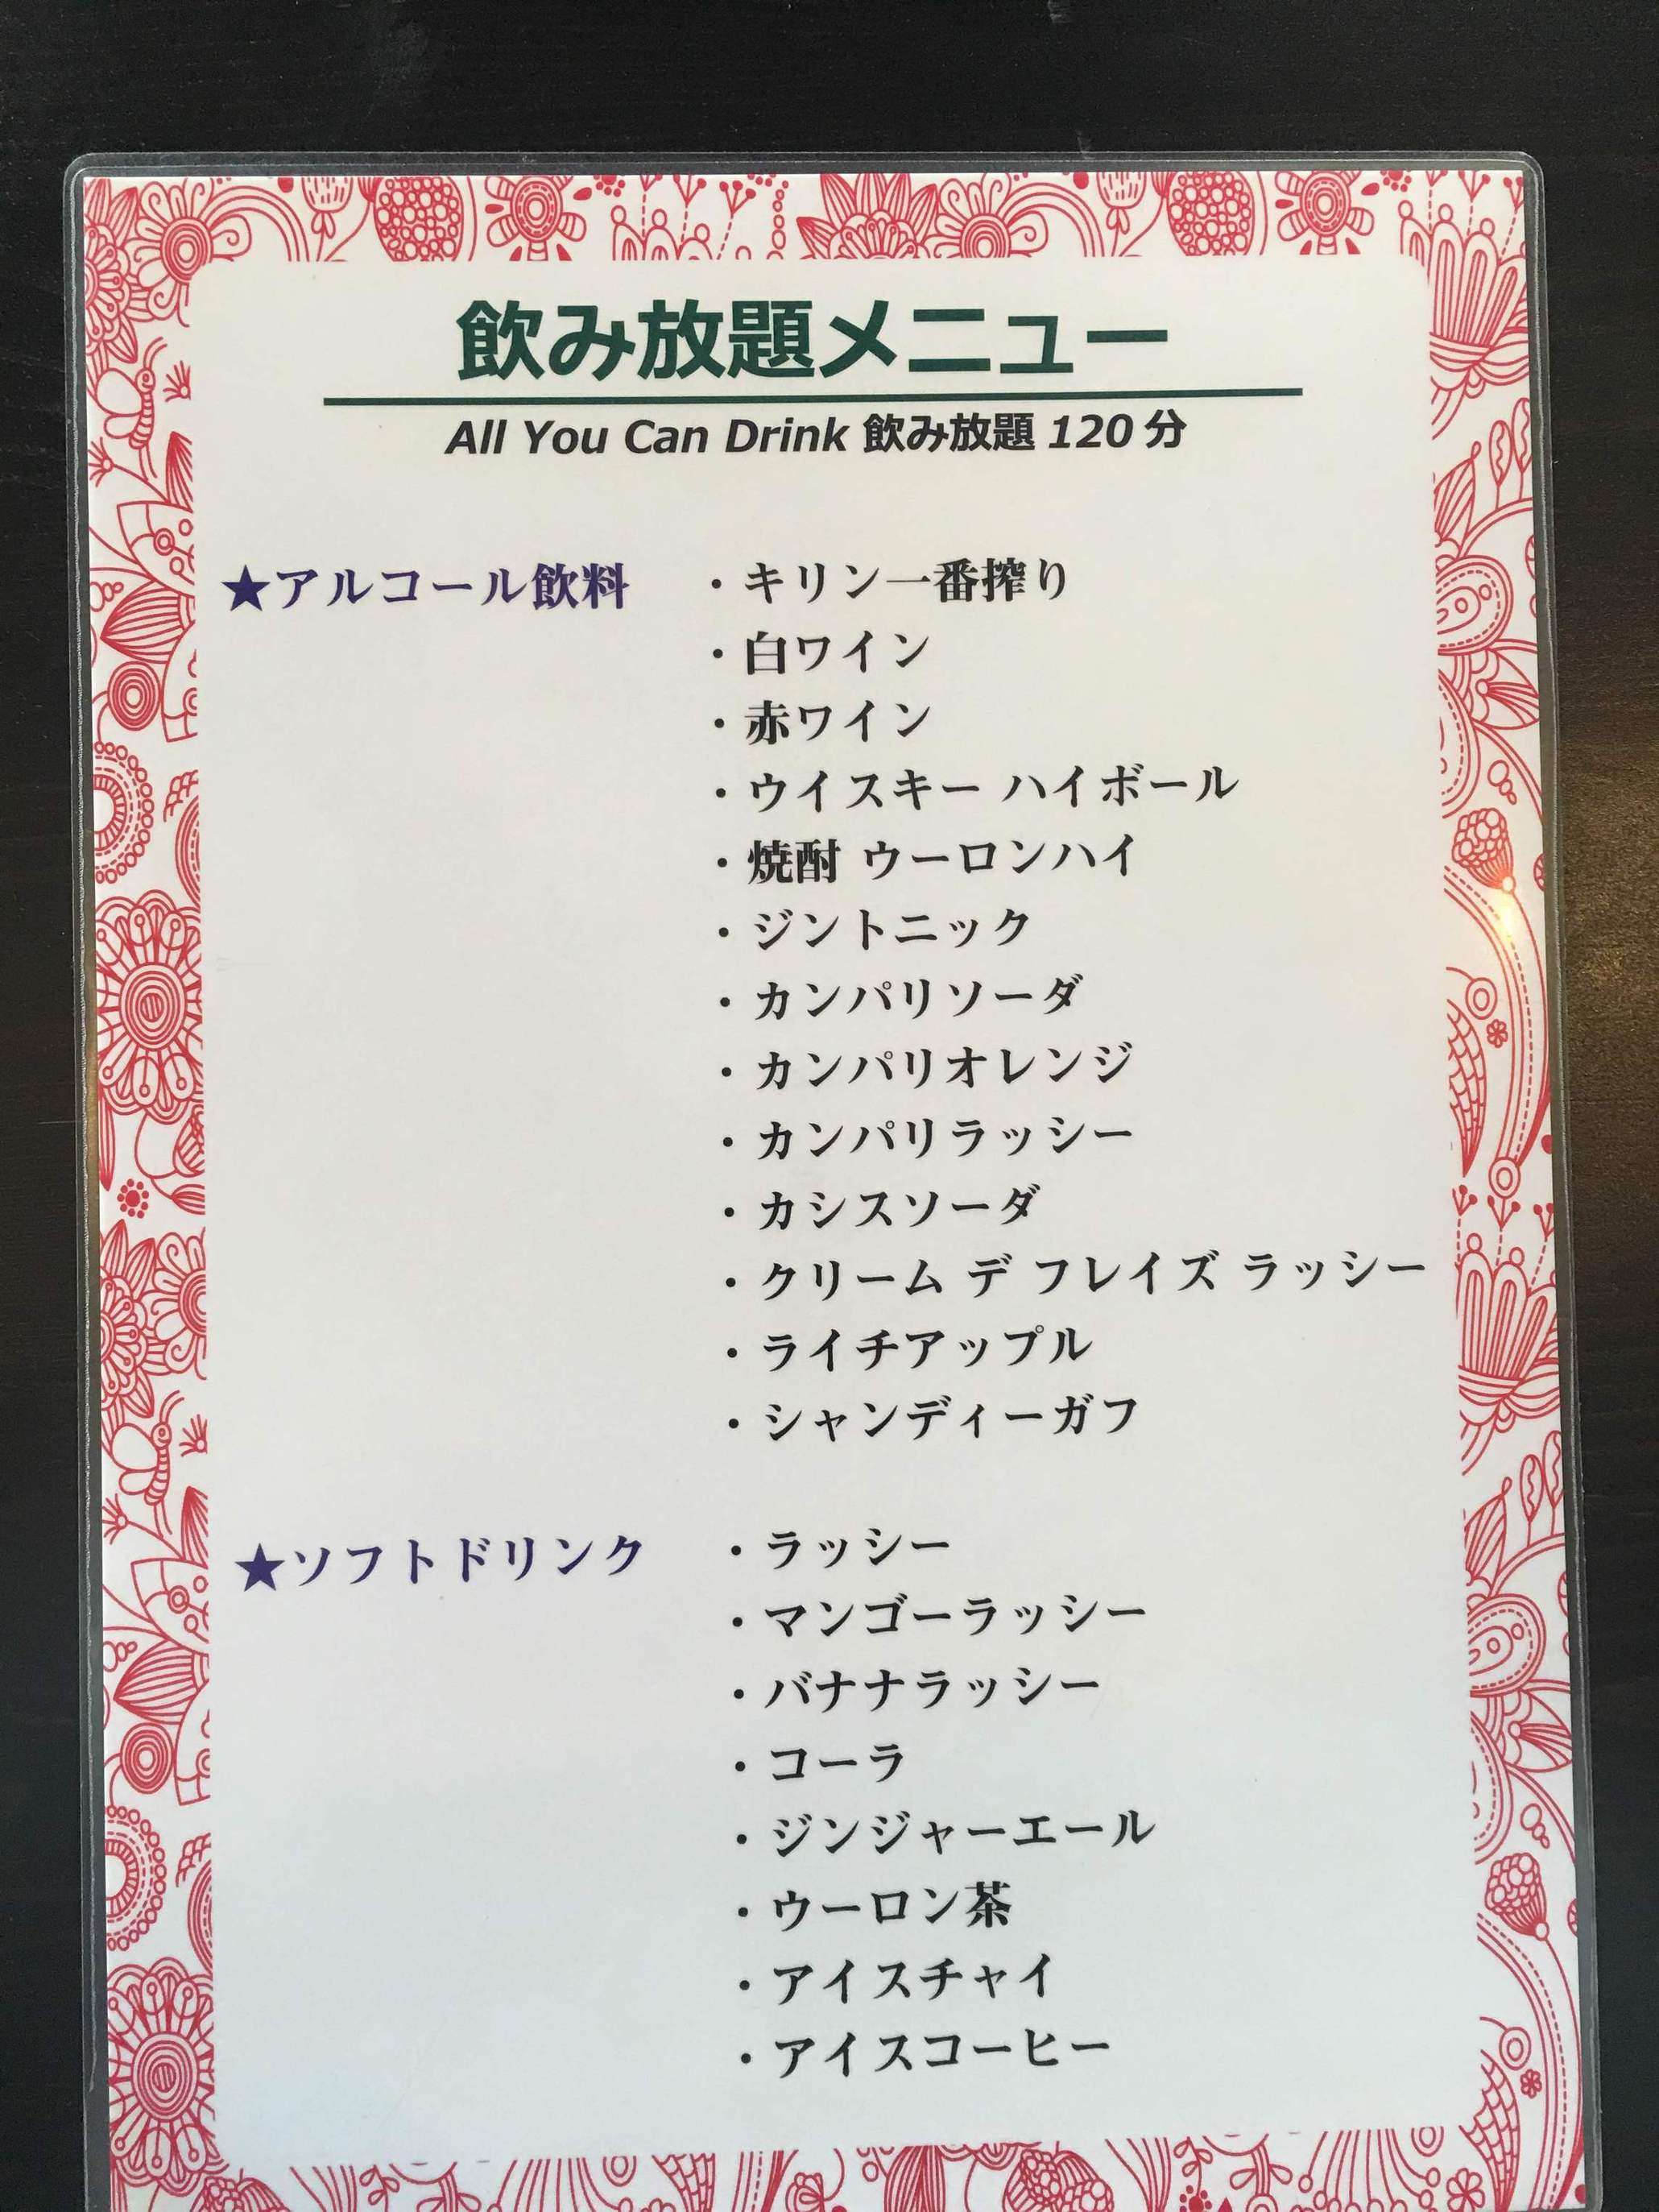 飲み放題メニュー
All You Can Drink 飲み放題 120 分
★アルコール飲料 ・キリン一番搾り
・白ワイン
・赤ワイン
・ウイスキー ハイボール
・焼酎 ウーロンハイ
・ジントニック
・カンパリソーダ
・カンパリオレンジ
・カンパリラッシー
・カシスソーダ
・クリーム デ フレイズ ラッシー
・ライチアップル
・シャンディーガフ
★ソフトドリンク ・ラッシー
・マンゴーラッシー
・バナナラッシー
・コーラ
・ジンジャーエール
・ウーロン茶
・アイスチャイ
・アイスコーヒー